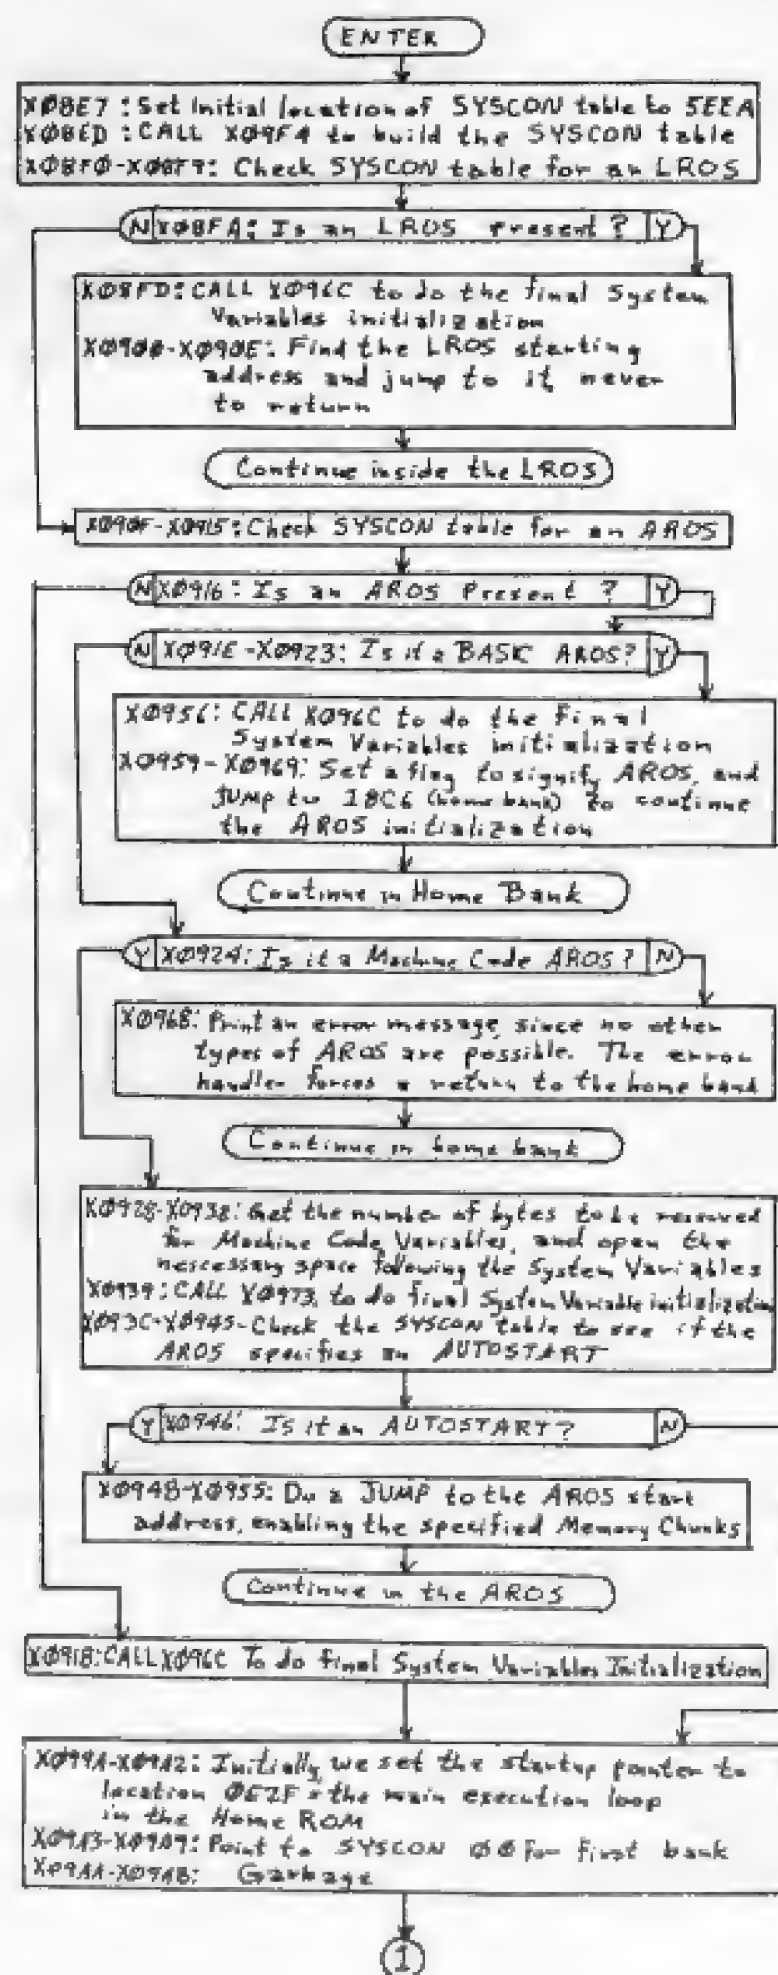 ENTER
XØ8E7: Set initial location of SYSCON table to 5EEA
XØ8ED: CALL XØ9F4 to build the SYSCON table
XØ8FØ-XØ8F9: Check SYSCON table for an LROS
N XØ8FA: Is an LROS present? Y
XØ8FD: CALL XØ96C to do the final System
Variables initialization
XØ900-XØ90E: Find the LROS starting
address and jump to it, never
to return
Continue inside the LROS
XØ90F-XØ915: Check SYSCON table for an AROS
N XØ916: Is an AROS Present ? Y
N XØ91E-XØ923: Is it a BASIC AROS? Y
XØ956: CALL XØ96C to do the Final
System Variables initialization
XØ959-XØ969: Set a flag to signify AROS, and
JUMP to 18C6 (home bank) to continue
the AROS initialization
Continue in Home Bank
Y XØ924: Is it a Machine Code AROS? N
XØ96B: Print an error message, since no other
types of AROS are possible. The error
handler forces a return to the home bank
Continue in home bank
XØ928-XØ938: Get the number of bytes to be reserved
for Machine Code Variables, and open the
nescessary space following the System Variables
XØ939: CALL XØ973, to do final System Variable initialization
XØ93C-XØ945-Check the SYSCON table to see if the
AROS specifies an AUTOSTART
Y XØ946: Is it an AUTOSTART? N
XØ94B-XØ955: Do a JUMP to the AROS start
address, enabling the specified Memory Chunks
Continue in the AROS
XØ91B: CALL XØ96C To do final System Variables Initialization
XØ99A-XØ9A2: Initially, we set the startup pointer to
location ØE2F = the main execution loop
in the Home ROM
XØ9A3-XØ9A9: Point to SYSCON ØØ for first bank
XØ9AA-XØ9AB: Garbage
1